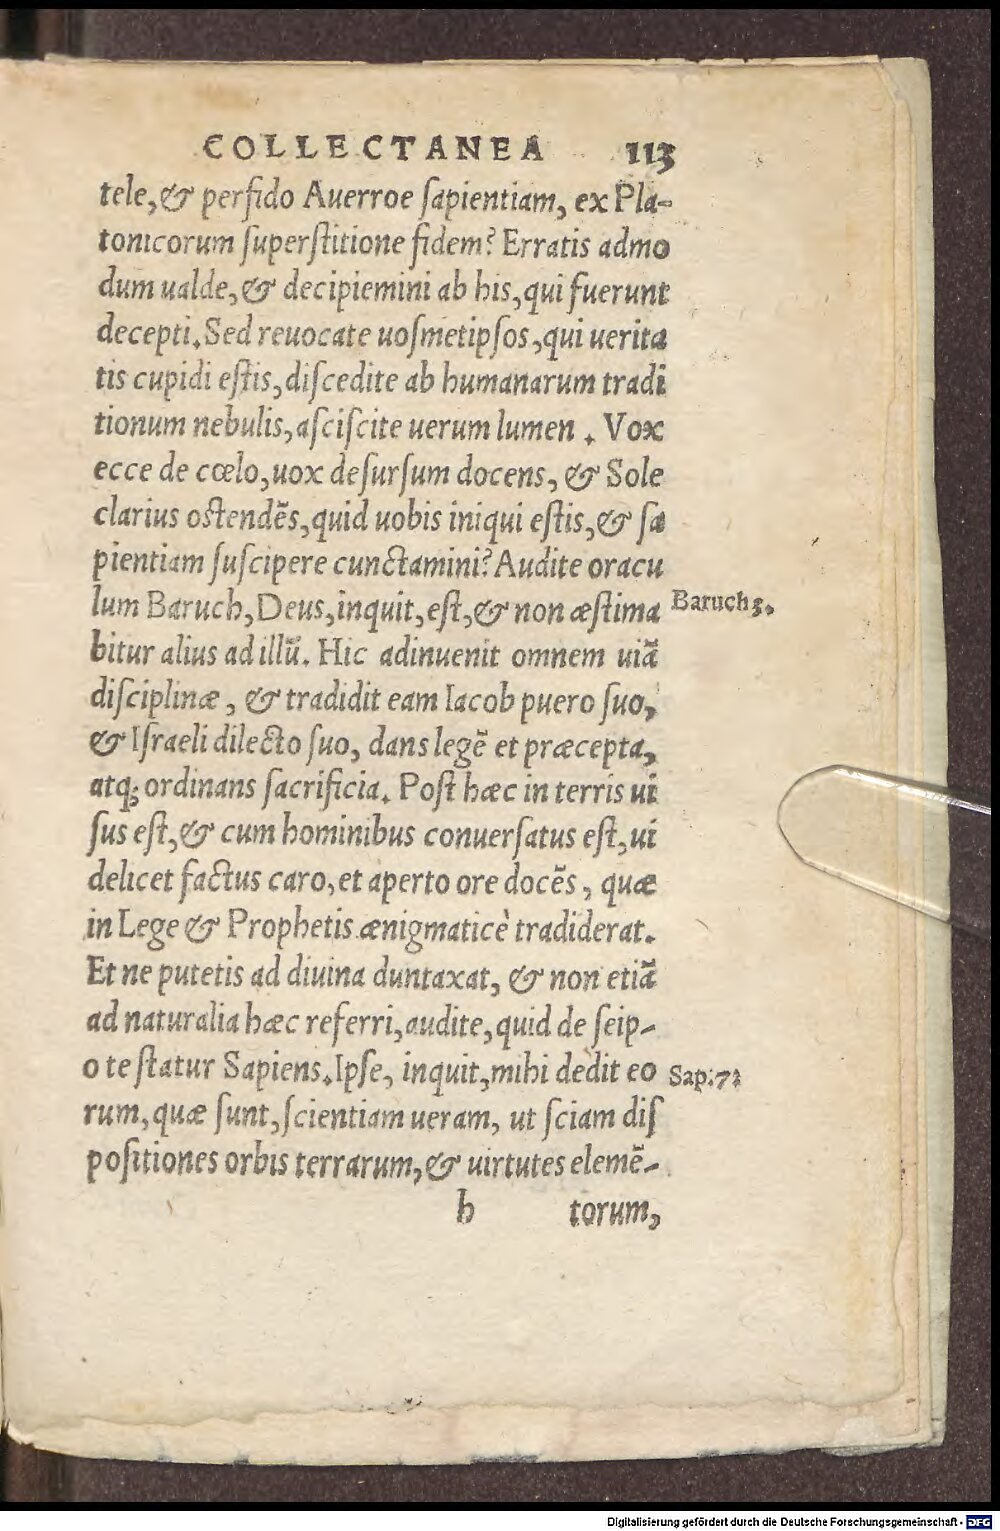 COLLECTANEA 113
tele, & perfido Auerroe ſapientiam, ex Pla-
tonicorum ſuperſtitione fidem? Erratis admo
dum ualde, & decipiemini ab his, qui fuerunt
decepti. Sed reuocate uoſmetipſos, qui uerita
tis cupidi eſtis, diſcedite ab humanarum tradi
tionum nebulis, aſciſcite uerum lumen . Vox
ecce de cœlo, uox deſurſum docens, & Sole
clarius oſtendẽs, quid uobis iniqui eſtis, & ſa
pientiam ſuſcipere cunctamini? Audite oracu
lum Baruch, Deus, inquit, eſt, & non æſtima
Baruch 3.
bitur alius ad illũ. Hic adinuenit omnem uiã
diſciplinæ, & tradidit eam Iacob puero ſuo,
& Iſraeli dilecto ſuo, dans legẽ et præcepta,
atq; ordinans ſacrificia. Poſt hæc in terris ui
ſus eſt, & cum hominibus conuerſatus eſt, ui
delicet factus caro, et aperto ore docẽs, quæ
in Lege & Prophetis ænigmaticè tradiderat.
Et ne putetis ad diuina duntaxat, & non etiã
ad naturalia hæc referri, audite, quid de ſeip-
o teſtatur Sapiens. Ipſe, inquit, mihi dedit eo
Sap. 7.
rum, quæ ſunt, ſcientiam ueram, ut ſciam diſ
poſitiones orbis terrarum, & uirtutes elemẽ-
h torum,
Digitalisierung gefördert durch die Deutsche Forschungsgemeinschaft - DFG